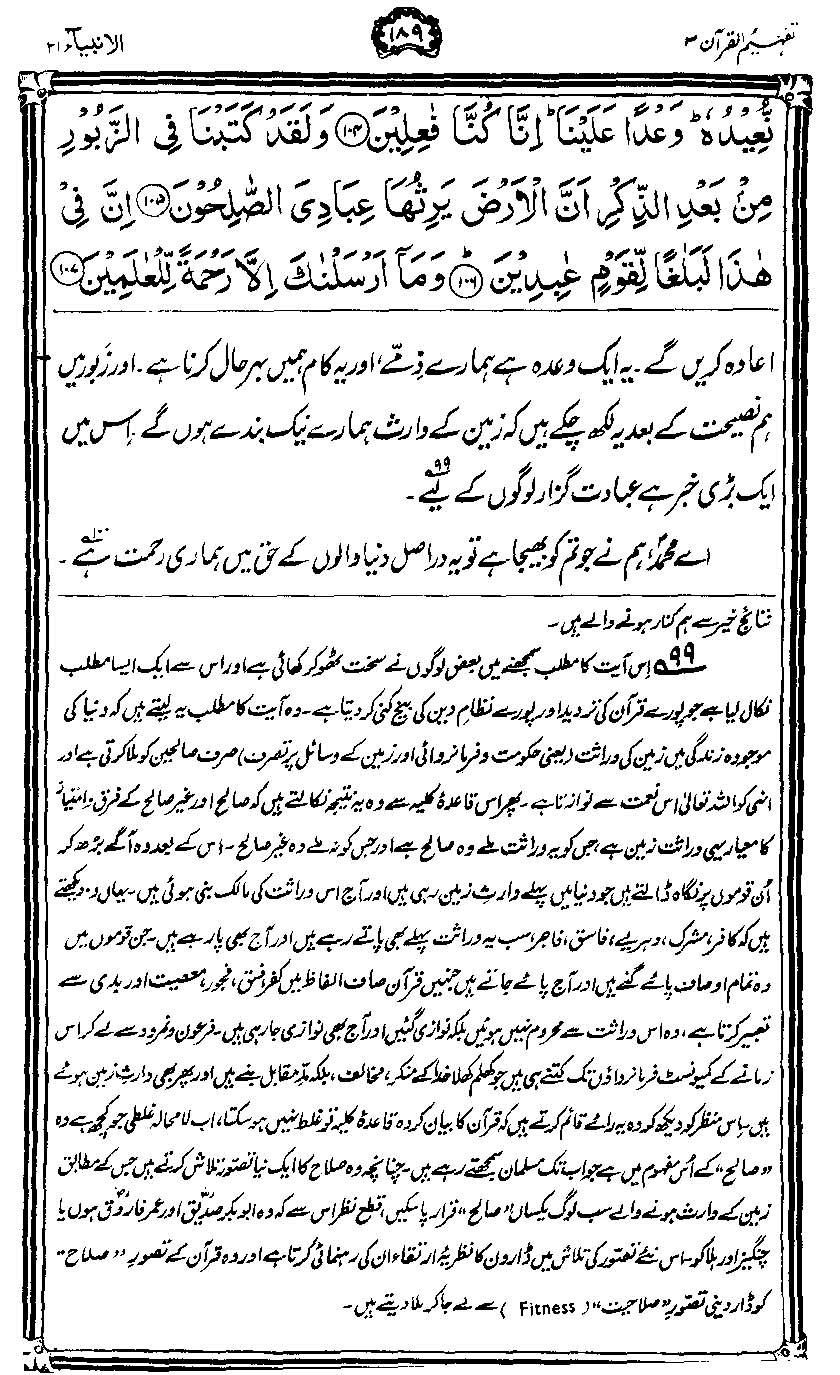 تفہیم القرآن ۳
۱۸۹
الانبیآء ۲۱
نُّعِیْدُهٗ ؕ وَعْدًا عَلَیْنَا ؕ اِنَّا كُنَّا فٰعِلِیْنَ ﴿۱۰۴﴾ وَلَقَدْ كَتَبْنَا فِی الزَّبُوْرِ
مِنْۢ بَعْدِ الذِّكْرِ اَنَّ الْاَرْضَ یَرِثُهَا عِبَادِیَ الصّٰلِحُوْنَ ﴿۱۰۵﴾ اِنَّ فِیْ
هٰذَا لَبَلٰغًا لِّقَوْمٍ عٰبِدِیْنَ ﴿۱۰۶﴾ؕ وَمَاۤ اَرْسَلْنٰكَ اِلَّا رَحْمَةً لِّلْعٰلَمِیْنَ ﴿۱۰۷﴾
اعادہ کریں گے۔ یہ ایک وعدہ ہے ہمارے ذِمّے، اور یہ کام ہمیں بہرحال کرنا ہے۔ اور زَبور میں
ہم نصیحت کے بعد یہ لکھ چکے ہیں کہ زمین کے وارث ہمارے نیک بندے ہوں گے۔ اِس میں
ایک بڑی خبر ہے عبادت گزار لوگوں کے لیے۹۹۔
اے محمدؐ، ہم نے جو تم کو بھیجا ہے تو یہ دراصل دنیا والوں کے حق میں ہماری رحمت ہے۱۰۰۔
نتائج خیر سے ہم کنار ہونے والے ہیں۔
۹۹ اِس آیت کا مطلب سمجھنے میں بعض لوگوں نے سخت ٹھوکر کھائی ہے اور اس سے ایک ایسا مطلب
نکال لیا ہے جو پورے قرآن کی تردید اور پورے نظامِ دین کی بیخ کنی کر دیتا ہے۔ وہ آیت کا مطلب یہ لیتے ہیں کہ دنیا کی
موجودہ زندگی میں زمین کی وراثت (یعنی حکومت و فرمانروائی اور زمین کے وسائل پر تصرف) صرف صالحین کو ملا کرتی ہے اور
انہی کو اللہ تعالیٰ اس نعمت سے نوازتا ہے۔ پھر اس قاعدۂ کلیہ سے وہ یہ نتیجہ نکالتے ہیں کہ صالح اور غیر صالح کے فرق و امتیاز
کا معیار یہی وراثت زمین ہے، جس کو یہ وراثت ملے وہ صالح ہے اور جس کو نہ ملے وہ غیر صالح۔ اس کے بعد وہ آگے بڑھ کر
اُن قوموں پر نگاہ ڈالتے ہیں جو دنیا میں پہلے وارثِ زمین رہی ہیں اور آج اس وراثت کی مالک بنی ہوئی ہیں۔ یہاں وہ دیکھتے
ہیں کہ کافر، مشرک، دہریے، فاسق، فاجر، سب یہ وراثت پہلے بھی پاتے رہے ہیں اور آج بھی پا رہے ہیں۔ جن قوموں میں
وہ تمام اوصاف پائے گئے ہیں اور آج پائے جاتے ہیں جنہیں قرآن صاف الفاظ میں کفر، فسق، فجور، معصیت اور بدی سے
تعبیر کرتا ہے، وہ اس وراثت سے محروم نہیں ہوئیں بلکہ نوازی گئیں اور آج بھی نوازی جا رہی ہیں۔ فرعون و نمرود سے لے کر اس
زمانے کے کمیونسٹ فرمانرواؤں تک کتنے ہی ہیں جو کھلم کھلا خدا کے منکر، مخالف، بلکہ مدِّ مقابل بنے ہیں اور پھر بھی وارثِ زمین ہوئے
ہیں۔ اِس منظر کو دیکھ کر وہ یہ رائے قائم کرتے ہیں کہ قرآن کا بیان کردہ قاعدۂ کلیہ تو غلط نہیں ہو سکتا، اب لامحالہ غلطی جو کچھ ہے وہ
”صالح“ کے اُس مفہوم میں ہے جو اب تک مسلمان سمجھتے رہے ہیں۔ چنانچہ وہ صلاح کا ایک نیا تصور تلاش کرتے ہیں جس کے مطابق
زمین کے وارث ہونے والے سب لوگ یکساں ”صالح“ قرار پا سکیں، قطع نظر اس سے کہ وہ ابوبکر صدیقؓ اور عمر فاروقؓ ہوں یا
چنگیز اور ہلاکو۔ اس نئے تصور کی تلاش میں ڈارون کا نظریۂ ارتقاء ان کی رہنمائی کرتا ہے اور وہ قرآن کے تصورِ ”صلاح“
کو ڈاروینی تصورِ ”صلاحیت“ (Fitness) سے لے جا کر ملا دیتے ہیں۔